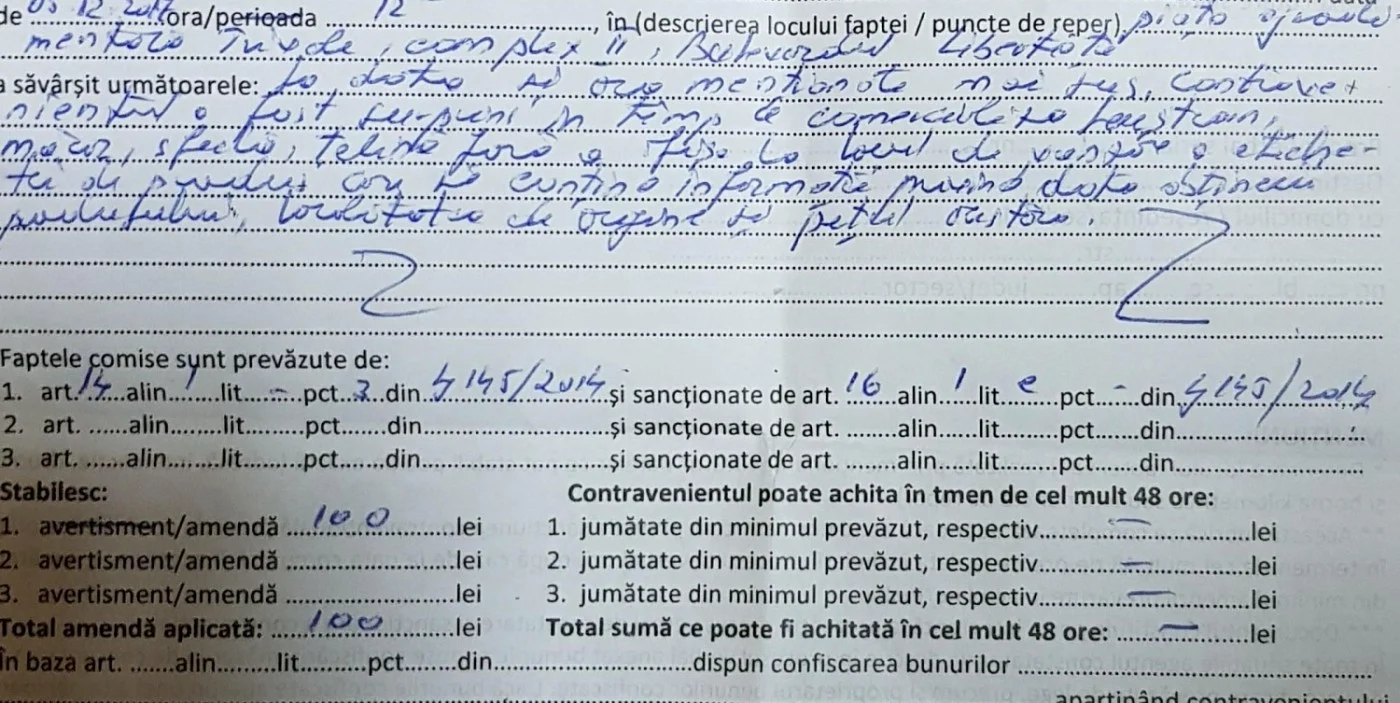 de 03 12 2017 ora/perioada 12, în (descrierea locului faptei / puncte de reper) piata
complex II, Bulevardul Libertatii
a săvârșit următoarele: la data si ora mentionate mai sus, contrave
nientul a fost surprins in timp ce comercializa
sfecla, telina fara a afisa la locul de vanzare o etiche
ta de produs care sa contina informatii privind data obtinerii
produsului, localitatea de origine si
Faptele comise sunt prevăzute de:
1. art. 14 alin 1 lit. - pct. 3 din L 145/2014 și sancționate de art. 16 alin 1 lit e pct. - din L 145/2014
2. art. ......alin........lit........pct......din..................și sancționate de art. ........alin......lit........pct......din..................
3. art. ......alin........lit........pct......din..................și sancționate de art. ........alin......lit........pct......din..................
Stabilesc: Contravenientul poate achita în tmen de cel mult 48 ore:
1. avertisment/amendă 100 lei 1. jumătate din minimul prevăzut, respectiv..... — .....lei
2. avertisment/amendă ..................lei 2. jumătate din minimul prevăzut, respectiv..... — .....lei
3. avertisment/amendă ..................lei 3. jumătate din minimul prevăzut, respectiv..... — .....lei
Total amendă aplicată: 100 lei Total sumă ce poate fi achitată în cel mult 48 ore: — lei
În baza art. .......alin........lit........pct......din..................dispun confiscarea bunurilor..................
aparținând contravenientului